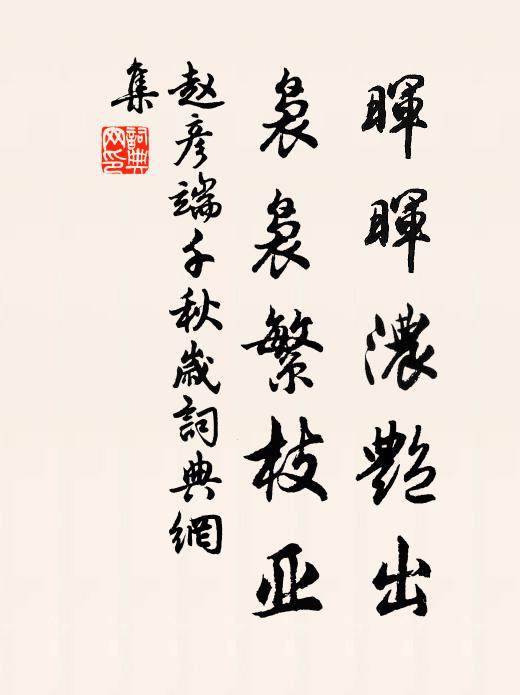 暉暉濃艷出
裊裊繁枝亚
赵彦端千秋歲詞典網
集
詞典网印